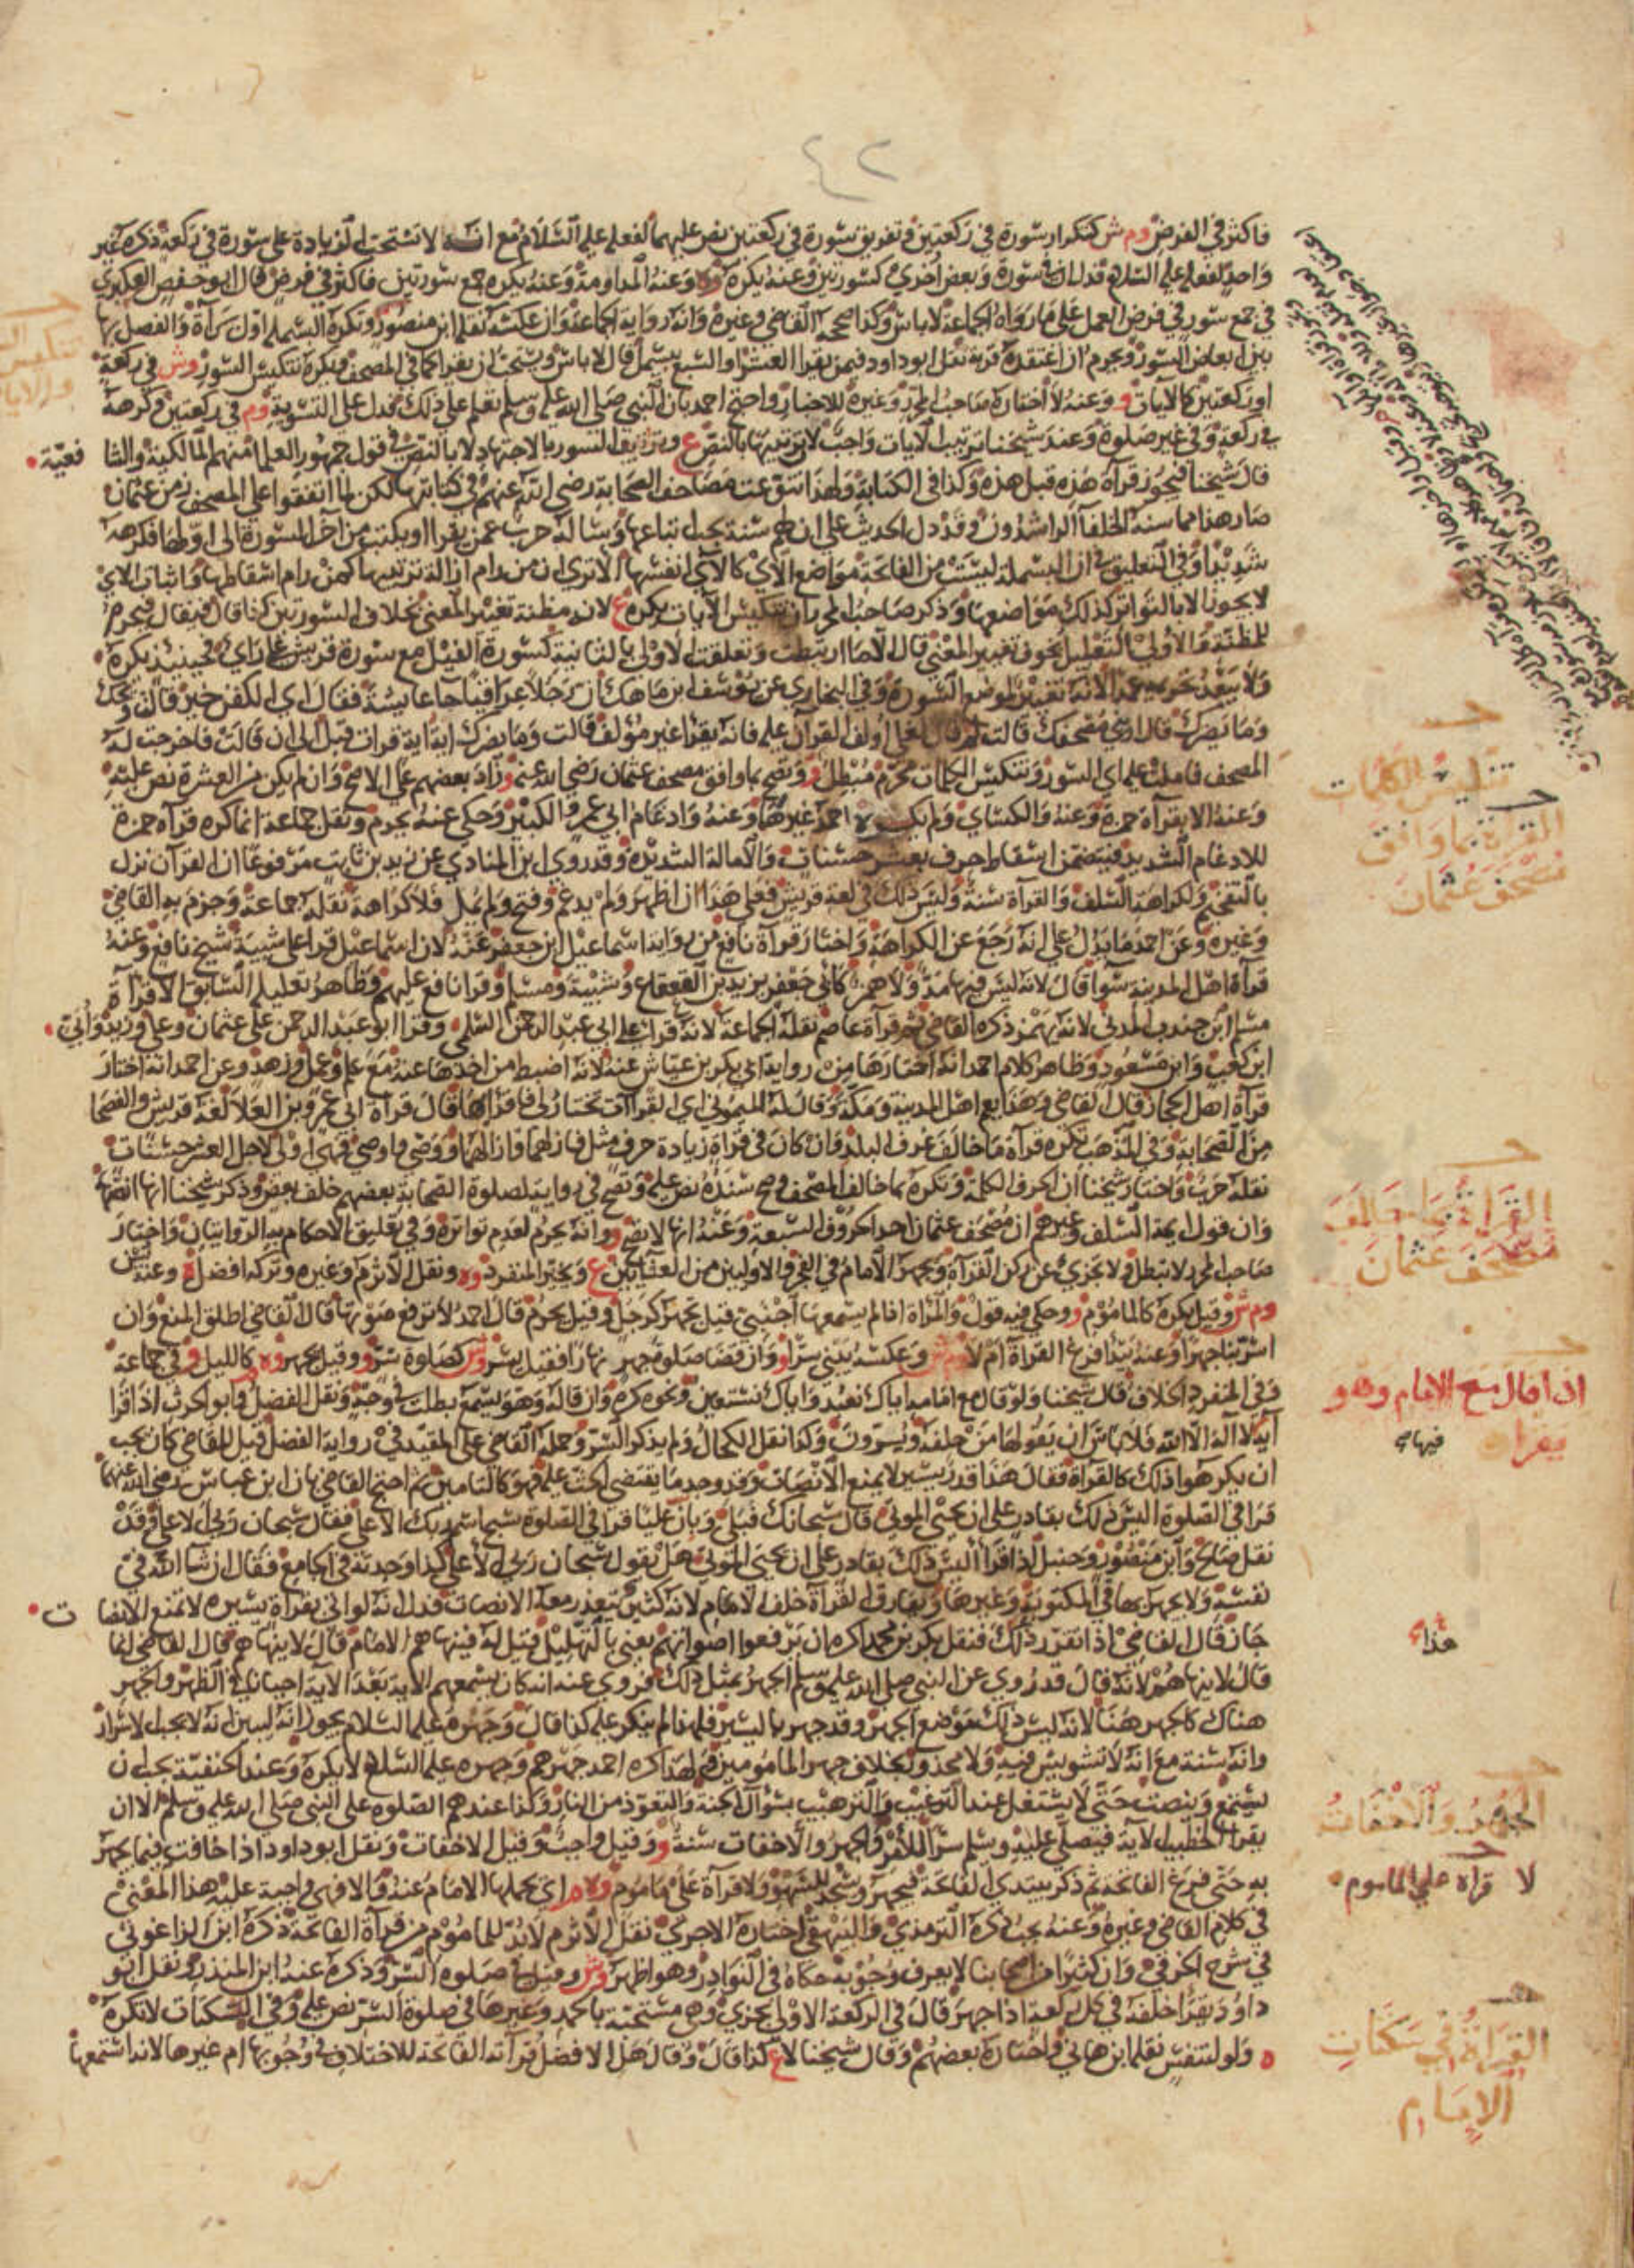 ٤٢
فاكثر في الفرض وم ش كتكرار سورة في ركعتين وتفريق سورة في ركعتين نص عليهما لفعله عليه السلام مع انه لا تستحب الزيادة على سورة في ركعة ذكره غير
واحد لفعله عليه السلام فدل ان سورة وبعض اخرى كسورتين وعنه يكره وعنه المداومة وعنه يكره جمع سورتين فاكثر في فرض قال ابو حفص العكبري
في جمع سور في فرض العمل على ما رواه الجماعة لا باس وكذا صححه القاضي وغيره وانه رواية الجماعة وان عكسه نقله ابن منصور وتكره البسملة اول براءة والفصل بها
بين ابعاض السور ويحرم ان اعتقده قربة نقل ابو داود فيمن يقرا العشر او السبع يبسمل قال لا باس ويستحب ان يقرا كما في المصحف ويكره تنكيس السور وش في ركعة
او ركعتين كالآيات و وعنه لا اختاره صاحب المحرر وغيره للاخبار واحتج احمد بان النبي صلى الله عليه وسلم تعلم على ذلك فدل على التسوية وم في ركعتين وكرهه
في ركعة وفي غير صلوة وعند شيخنا ترتيب الآيات واجب لان ترتيبها بالنص ع وترتيب السور بالاجتهاد لا بالنص في قول جمهور العلما منهم المالكية والشا فعية
قال شيخنا فيجوز قرآة هذه قبل هذه وكذا في الكتابة ولهذا تنوعت مصاحف الصحابة رضي الله عنهم في كتابتها لكن لما اتفقوا على المصحف زمن عثمان
صار هذا مما سنه الخلفآ الراشدون وقد دل الحديث على ان لهم سنة يجب اتباعها وسا له حرب عمن يقرا او يكتب من آخر السورة الى اولها فكرهه
شديدا وفي التعليق في ان البسملة ليست من الفاتحة مواضع الآي كالآي انفسها الا ترى ان من رام ازالة ترتيبها كمن رام اسقاطها واثبات الآي
لا يجوز الا بالتواتر كذلك مواضعها وذكر صاحب المحرر ان تنكيس الآيات يكره ع لانه مظنة تغيير المعنى بخلاف السورتين كذا قال فيقال فيحرم
للمظنة والاولى التعليل بخوف تغيير المعنى قال الا ما ارتبطت وتعلقت الاولى بالثانية كسورة الفيل مع سورة قريش على راي فحينيذ يكره
ولا يبعد تحريمه عمدا لانه تغيير لموضع السورة وفي البخاري عن يوسف بن ماهك ان رجلا عراقيا جا عايشة فقال اي الكفن خير قالت ويحك
وما يضرك قال اريني مصحفك قالت لم قال لعلي اولف القرآن عليه فانه يقرا غير مؤلف قالت وما يضرك اية اية قرات قبل الى ان قالت فاخرجت له
المصحف فاملت عليه اي السور وتنكيس الكلمات محرم مبطل و وتصح بما وافق مصحف عثمان رضي الله عنه و زاد بعضهم على الاصح وان لم يكن من العشرة نص عليه
وعنه الا بقرآة حمزة وعنه والكساي ولم يكره احمد غيرهما وعنه وادغام ابي عمرو الكبير وحكي عنه يحرم ونقل جماعة انما كره قرآة حمزة
للادغام الشديد فيتضمن اسقاط حرف بعشر حسنات والامالة الشديدة وقد روى ابن المنادي عن زيد بن ثابت مرفوعا ان القرآن نزل
بالتفخيم ولكراهة السلف والقرآة سنة وليس ذلك في لغة قريش فعلى هذا ان اظهر ولم يدغم وفتح ولم يمل فلا كراهة نقله جماعة وجزم به القاضي
وغيره وعن احمد ما يدل على انه رجع عن الكراهة واختار قرآة نافع من رواية اسماعيل ابن جعفر عنه لان اسماعيل قرا على شيبة شيخ نافع وعنه
قرآة اهل المدينة سوا قال لانه ليس فيها مد ولا همز كابي جعفر يزيد بن القعقاع وشيبة ومسلم وقرا نافع عليهم وظاهر تعليله السابق الا قرآة
مسلم ابن جندب المدني لانه يهمز ذكره القاضي ثم قرآة عاصم نقله الجماعة لانه قرا على ابي عبد الرحمن السلمي وقرا ابو عبد الرحمن على عثمان وعلي وزيد وابي
ابن كعب وابن مسعود وظاهر كلام احمد انه اختارها من رواية ابي بكر بن عياش عنه لانه اضبط من اخذها عنه مع علم وعمل وزهد وعن احمد انه اختار
قرآة اهل الحجاز قال القاضي وهذا يعم اهل المدينة ومكة وقال له الميموني اي القرآات تختار لي فاقرا بها قال قرآة ابي عمرو بن العلا لغة قريش والفصحا
من الصحابة وفي المذهب تكره قرآة ما خالف عرف البلد وان كان في قرآة زيادة حرف مثل فازلهما فازالهما ووصى واوصى فهي اولى لاجل العشر حسنات
نقله حرب واختار شيخنا ان الحرف الكلمة وتكره بما خالف المصحف وصح سنده نص عليه وتصح في رواية لصلوة الصحابة بعضهم خلف بعض وذكر شيخنا انها انصهما
وان قول ايمة السلف وغيرهم ان مصحف عثمان احد الحروف السبعة وعنه انها لا تصح و وانه يحرم لعدم تواتره وفي تعليق الاحكام به الروايتان واختار
صاحب المحرر لا تبطل ولا تجزي عن ركن القرآة ويجهر الامام في الفجر والاوليين من العشايين ع ويخير المنفرد وه ونقل الاثرم وغيره وتركه افضل وعنه يسن
وم ش وقيل يكره كالماموم و وحكي فيه قول والمراة اذا لم يسمعها اجنبي قيل تجهر كرجل وقيل يحرم قال احمد لا ترفع صوتها قال القاضي اطلق المنع وان
اسر بنا جهرا وعنه يبتدا فرغ القرآة ام لا وعكسه يبني سرا و وان قضا صلوة جهر نهارا فقيل يسر وش كصلوة سر و وقيل يجهر وه كالليل و في جماعة
وفي المنفرد الخلاف قال شيخنا ولو قال مع امامه اياك نعبد واياك نستعين ونحوه كره وان قاله وهو يسمع بطلت في وجه ونقل الفضل وابو الحرث اذا قرا
آية لا آله الا الله فلا باس ان يقولها من خلفه ويسرون وكذا نقل الكحال ولم يذكر السر وحمله القاضي على المقيد في رواية الفضل قيل للقاضي كان يجب
ان يكره هوا ذلك كالقرآة فقال هذا قدر يسير لا يمنع الانصات وقد وجد ما يقتضي الحث عليه فهو كالتامين ثم احتج القاضي بان ابن عباس رضي الله عنهما
قرا في الصلوة اليس ذلك بقادر على ان يحيي الموتى قال سبحانك فبلى وبان عليا قرا في الصلوة سبح اسم ربك الاعلى فقال سبحان ربي الاعلى وقد
نقل صالح وابن منصور وحنبل اذا قرا اليس ذلك بقادر على ان يحيي الموتى هل يقول سبحان ربي الاعلى كذا وجدته في الجامع فقال ان شآ الله في
نفسه ولا يجهر بها في المكتوبة وغيرها ويفارق القرآة خلف الامام لانه كثير يتعذر معه الانصات فدل انه لو اتى بقرآة يسيره لا تمنع الانصا ت
جاز قال القاضي اذا تقرر ذلك فنقل بكر بن محمد اكره ان يرفعوا اصواتهم يعني بالتهليل قيل له فينهاهم الامام قال لا ينهاهم قال القاضي انما
قال لا ينهاهم لانه قال قد روي عن النبي صلى الله عليه وسلم الجهر بمثل ذلك فروي عنه انه كان يسمعهم الاية بعد الآية احيانا في الظهر والجهر
هناك كالجهر هنا لانه ليس ذلك بموضع الجهر وقد جهر باليسير فلهذا لم ينكر عليه كذا قال وجهره عليه السلام يجوز انه ليبين انه لا يجب الاسرار
وانه سنة مع انه لا تشويش فيه ولا محذور بخلاف جهر المامومين فلهذا كره احمد جهرهم وجهره عليه السلام لا يكره وعند الحنفية يجب ان
يستمع وينصت حتى لا يشتغل عند الترغيب والترهيب بسؤال الجنة والتعوذ من النار وكذا عندهم الصلوة على النبي صلى الله عليه وسلم الا ان
يقرا الخطيب الاية فيصلي عليه وسلم سرا للامر والجهر والاخفات سنة و وقيل واجب وقيل الاخفات ونقل ابو داود اذا خافت فيما يجهر
به حتى فرغ الفاتحة ثم ذكر يبتدي الفاتحة فيجهر ويسجد للسهو ولا قرآة على ماموم وه م اي يحملها الامام عنه والا فهي واجبة عليه هذا المعنى
في كلام القاضي وغيره وعنه يجب ذكره الترمذي والبيهقي اختاره الاجري نقل الاثرم لا بد للماموم من قرآة الفاتحة ذكره ابن الزاغوني
في شرح الخرقي وان كثيرا من اصحابنا لا يعرف وجوبه حكاه في النوادر وهو اظهر وش وقيل في صلوة السر وذكره عنه ابن المنذر ونقل ابو
داود يقرا خلفه في كل ركعة اذا جهر قال في الركعة الاولى تجزي وهي مستحبة بالحمد وغيرها في صلوة السر نص عليه وفي السكتات لا تكره
ه ولو لتنفس نقله ابن هاني واختاره بعضهم وقال شيخنا لا ع كذا قال وقال هل الافضل قرآته الفاتحة للاختلاف في وجوبها ام غيرها لانه استمعها
تنكيس الكلمات
القراة بما وافق
مصحف عثمان
القراة بما خالف
مصحف عثمان
اذا قال مع الامام وهو
يقرا
هذاء
الجهر والاخفات
لا قراة على الماموم
القراة في سكتات
الامام